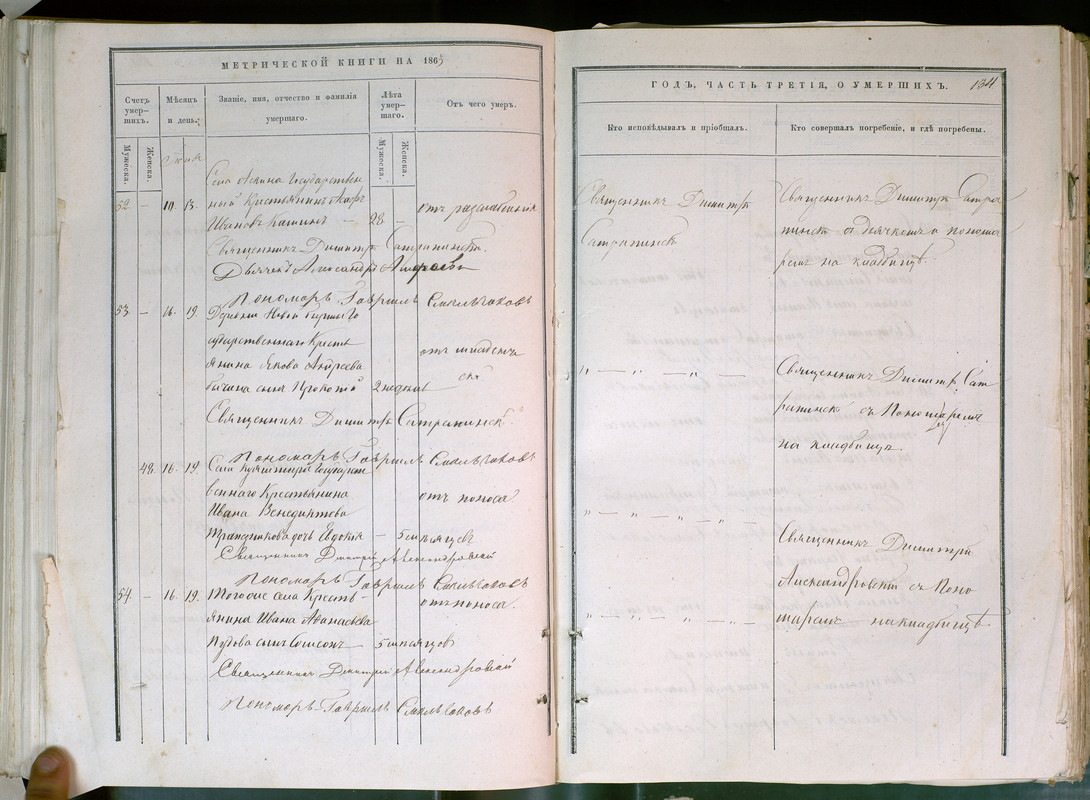 МЕТРИЧЕСКОЙ КНИГИ НА 1865
Счетъ умер-шихъ.
Мужеска.
Женска.
Мѣсяцъ и день.
Званіе, имя, отчество и фамилія умершаго.
Лѣта умер-шаго.
Мужеска.
Женска.
Отъ чего умеръ.
52 — 10. 13.
Села Государствен-
ный Крестьянинъ
Ивановъ Кашинъ — 28 —
отъ разслабленія
Священникъ Димитрій Сатрапинскій.
Дьячекъ Александръ Андреевъ
Пономарь Гавріилъ Смельчаковъ
53 — 16. 19.
Деревни Новой Го
сударственнаго Кресть
янина Якова Андреева
сынъ Прокопій 2 недѣли
отъ младенче
ска
Священникъ Димитрій Сатрапинскій.
Пономарь Гавріилъ Смельчаковъ
48. 16. 19
Села Государст
веннаго Крестьянина
Ивана Венедиктова
дочь Евдокія — 5 мѣсяцевъ
отъ поноса
Священникъ Димитрій Александровскій
Пономарь Гавріилъ Смельчаковъ
54. — 16. 19.
Тогоже села Кресть-
янина Ивана Аѳанасьева
сынъ Самсонъ — 5 мѣсяцовъ
отъ поноса.
Священникъ Димитрій Александровскій
Пономарь Гавріилъ Смельчаковъ
ГОДЪ, ЧАСТЬ ТРЕТІЯ, О УМЕРШИХЪ.
134
Кто исповѣдывалъ и пріобщалъ.
Кто совершалъ погребеніе, и гдѣ погребены.
Священникъ Димитрій
Сатрапинскій
Священникъ Димитрій Сатра
пинскій съ дьячкомъ и понома
ремъ на кладбищѣ.
„ — „ — „ — „
Священникъ Димитрій Сат
рапинскій съ Пономаремъ
на кладбищѣ.
„ — „ — „ — „
Священникъ Димитрій
Александровскій съ Поно
маремъ на кладбищѣ.
„ — „ — „ — „